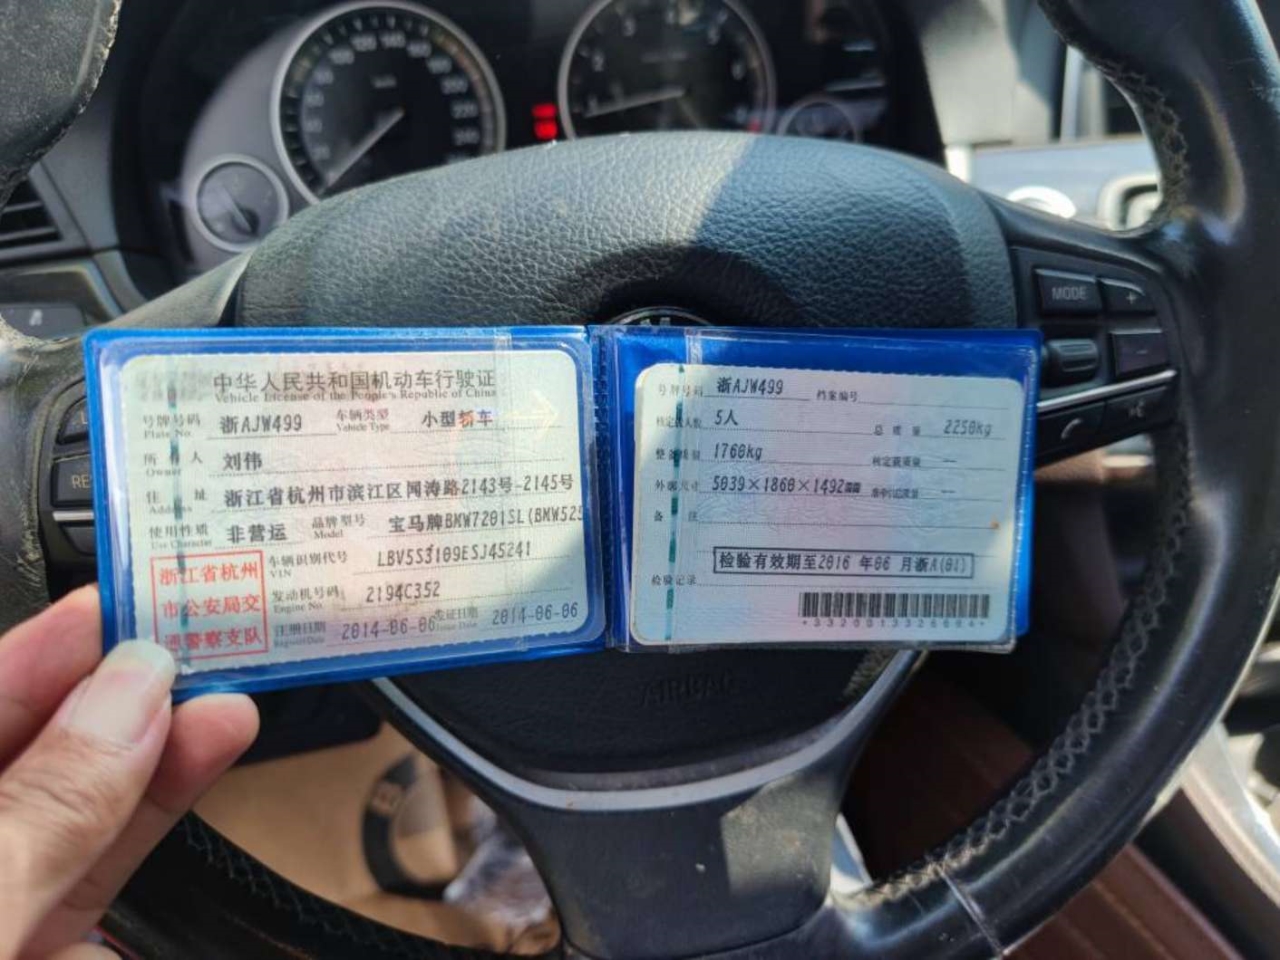 中华人民共和国机动车行驶证
Vehicle License of the People's Republic of China
号牌号码 浙AJW499 车辆类型 小型轿车
Plate No. Vehicle Type
所有人 刘伟
Owner
住址 浙江省杭州市滨江区闻涛路2143号-2145号
Address
使用性质 非营运 品牌型号 宝马牌BMW7201SL(BMW525
Use Character Model
浙江省杭州
市公安局交
通警察支队
车辆识别代号 LBV5S3109ESJ45241
VIN
发动机号码 2194C352
Engine No.
注册日期 2014-06-06 发证日期 2014-06-06
Register Date Issue Date
号牌号码 浙AJW499 档案编号
核定载人数 5人 总质量 2250kg
整备质量 1760kg 核定载质量 —
外廓尺寸 5039×1860×1492mm —
备注
检验有效期至2016年06月浙A(01)
检验记录
MODE
+
AIRBAG